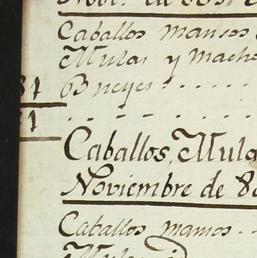 Novi. de
Caballos mansos
Mulas y macho
Bueyes . . . . . .
Caballos, Mula
Noviembre de 8
Caballos mansos . .
Mulas